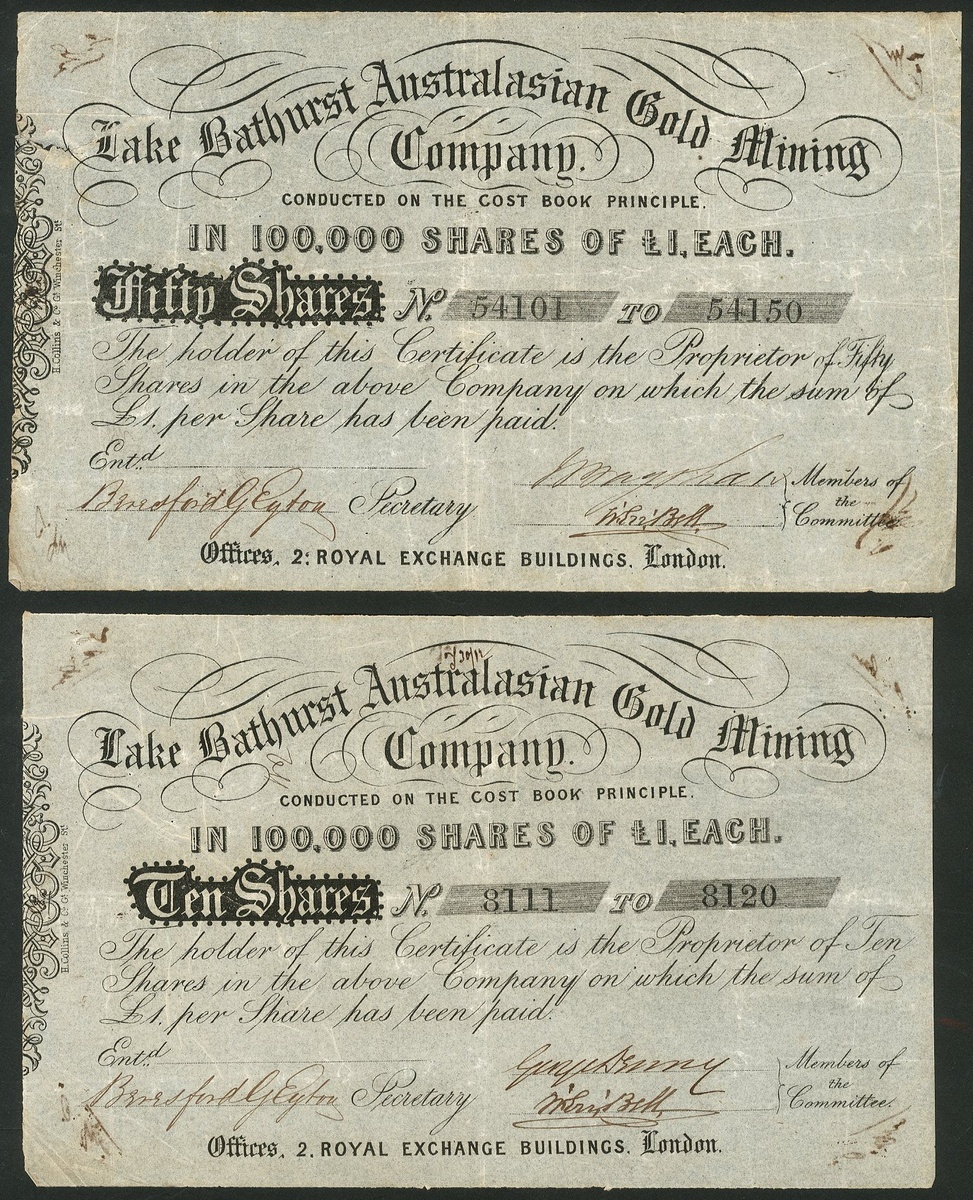 Lake Bathurst Australasian Gold Mining
Company.
CONDUCTED ON THE COST BOOK PRINCIPLE.
IN 100,000 SHARES OF £1, EACH.
Fifty Shares No. 54101 TO 54150
The holder of this Certificate is the Proprietor of Fifty
Shares in the above Company on which the sum of
£1. per Share has been paid.
Ent.d
Beresford G Eyton Secretary
Members of
the
Committee
Offices, 2: ROYAL EXCHANGE BUILDINGS. London.
H. Collins, & Co. Gt. Winchester St.
Lake Bathurst Australasian Gold Mining
Company.
CONDUCTED ON THE COST BOOK PRINCIPLE.
IN 100,000 SHARES OF £1, EACH.
Ten Shares No. 8111 TO 8120
The holder of this Certificate is the Proprietor of Ten
Shares in the above Company on which the sum of
£1. per Share has been paid.
Ent.d
Beresford G Eyton Secretary
Members of
the
Committee.
Offices, 2. ROYAL EXCHANGE BUILDINGS. London.
H. Collins, & Co. Gt. Winchester St.